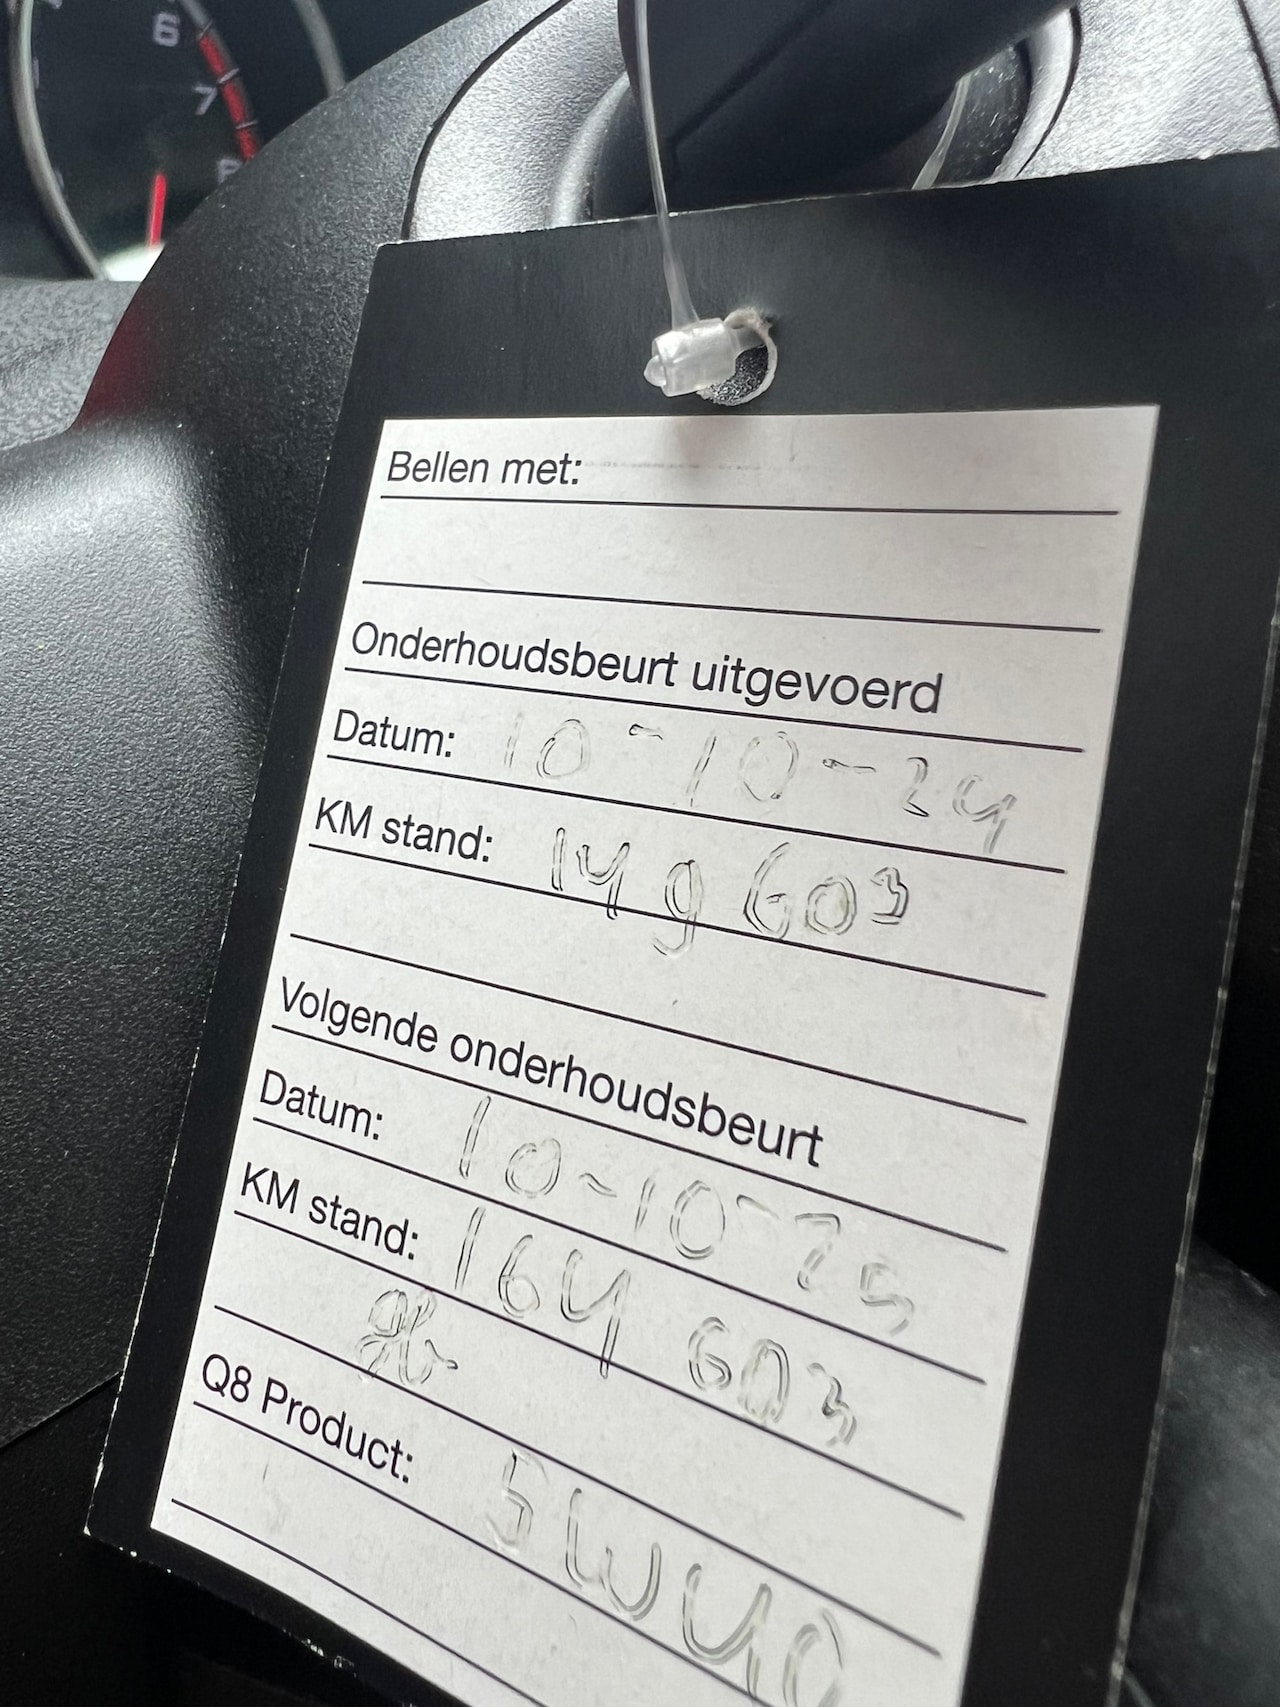 6
7
8
Bellen met:
Onderhoudsbeurt uitgevoerd
Datum: 10-10-24
KM stand: 149603
Volgende onderhoudsbeurt
Datum: 10-10-25
KM stand: 164603
Q8 Product: 5W40